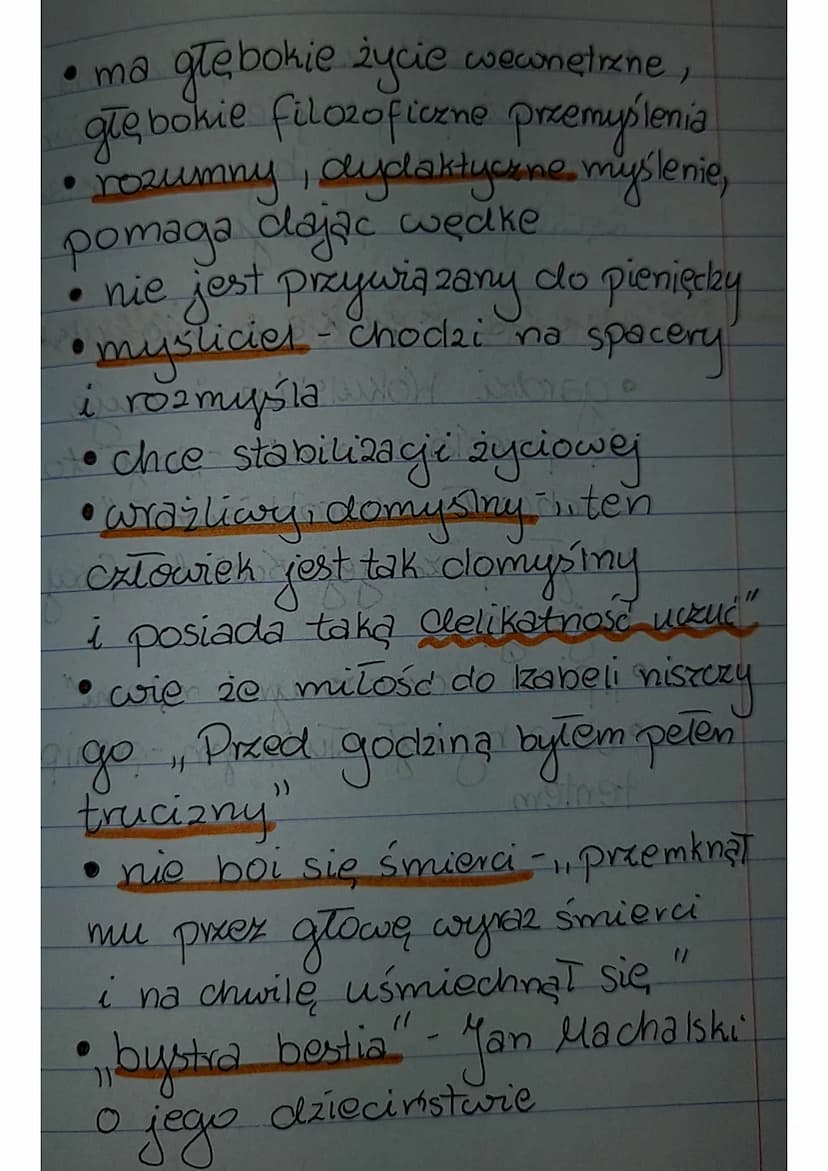 • ma głębokie życie wewnętrzne,
głębokie filozoficzne przemyślenia
• rozumny, dydaktyczne myślenie,
pomaga dając wędkę
• nie jest przywiązany do pieniędzy
• myśliciel - chodzi na spacery
i rozmyśla
• chce stabilizacji życiowej
• wrażliwy, domyślny - „ten
człowiek jest tak domyślny
i posiada taką delikatność uczuć"
• wie że miłość do Izabeli niszczy
go „Przed godziną byłem pełen
trucizny"
• nie boi się śmierci - „przemknął
mu przez głowę wyraz śmierci
i na chwilę uśmiechnął się"
• „bystra bestia" - Jan Machalski
o jego dzieciństwie